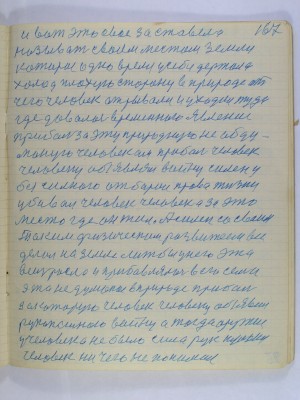 167
и вот это свое заставело
називат своим местом Землю
которое одно время у себя держала
холод плохую сторону в природе от
чего человек отрывался и уходил туда
где давалось временного явление
прибал за эту природную не обду-
маную человеком прибал человек
человеку обявлял войну силен у
без силного отбирал права жизни
убивал человек человека за это
место где он жил. А силен со своим
Таким физическим развитием все
делал на Земле лит бы у него это
выиграло и прибавлялас в сем семи
эта не думала в природе прибал
за которую человек человеку обявил
рукопашного войну а тогда оружия
у человека не было сила рук кулаки
человек ни чего не понимал